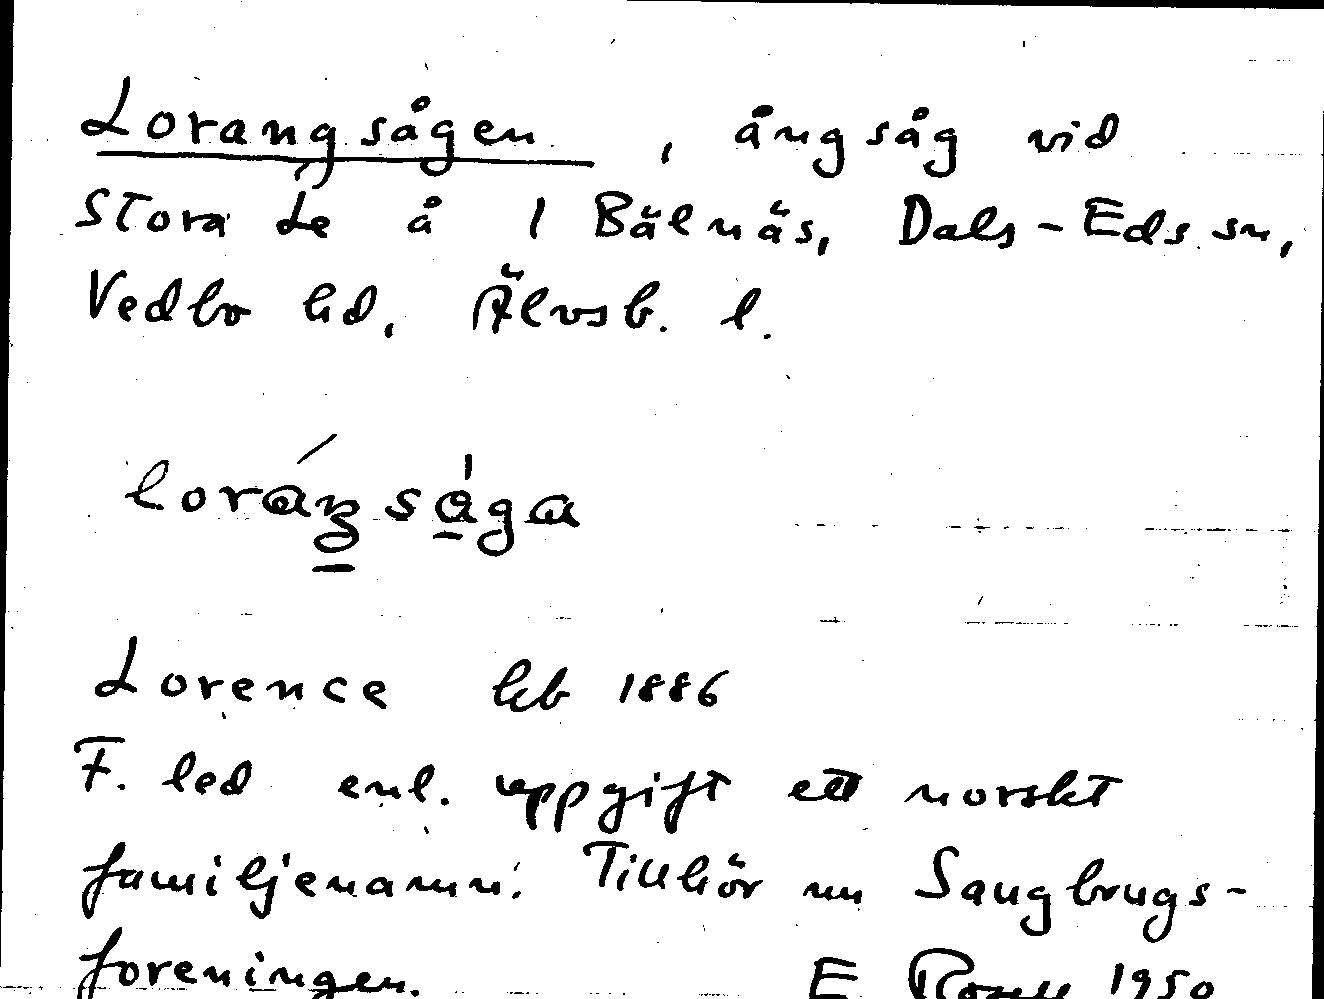 Lorangsågen, ångsåg vid
Stora Le å 1 Bälnäs, Dals-Eds sn,
Vedbo hd, Älvsb. l.
Lorence kb 1886
F. led enl. uppgift ett norskt
familjenamn. Tillhör nu Saugbrugs-
foreningen. E 1950